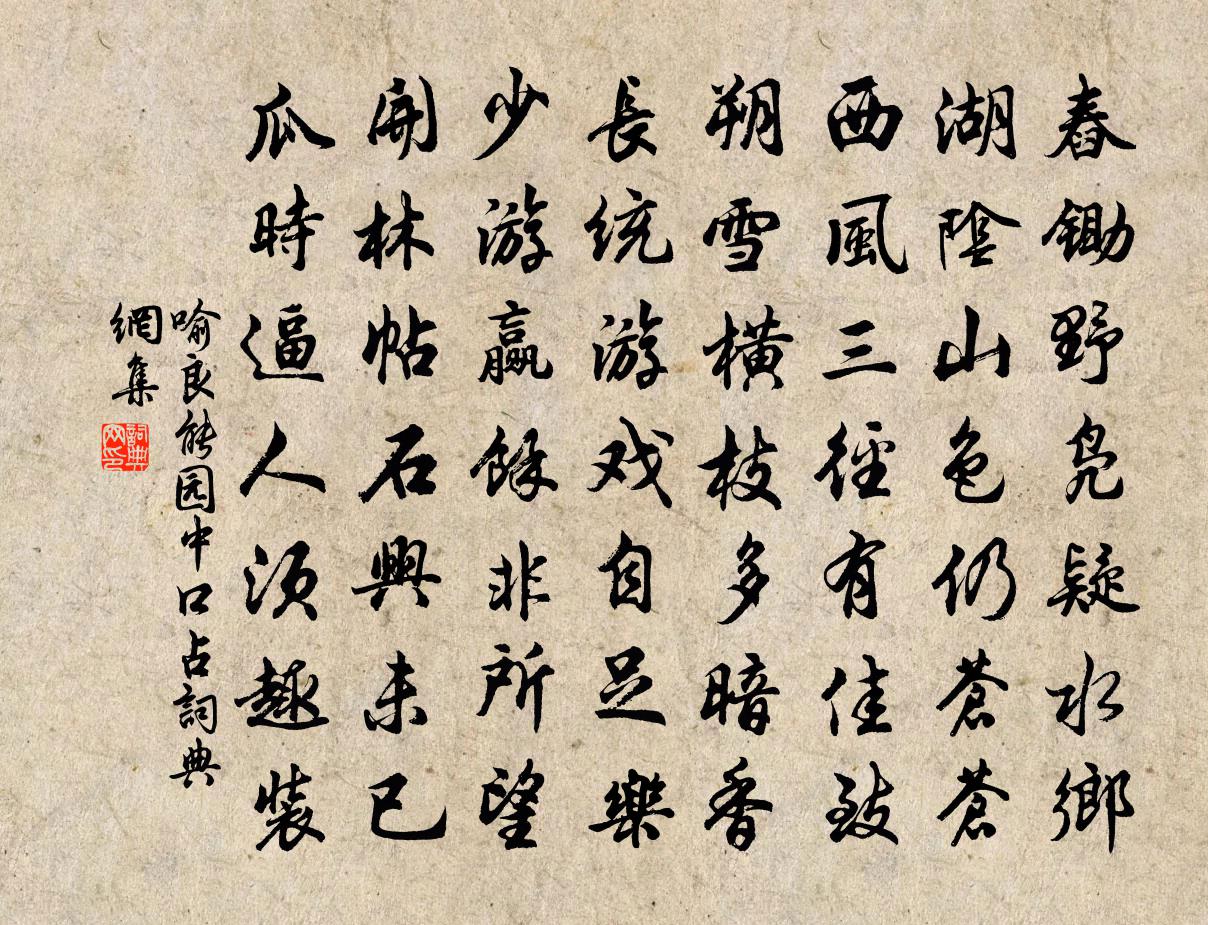 舂鋤野鳧疑水鄉
湖陰山色仍蒼蒼
西風三徑有佳致
朔雪橫枝多暗香
長統游戏自足樂
少游贏餘非所望
開林帖石興未已
瓜時逼人須趣裝
喻良能园中口占詞典
網集
詞典
网印